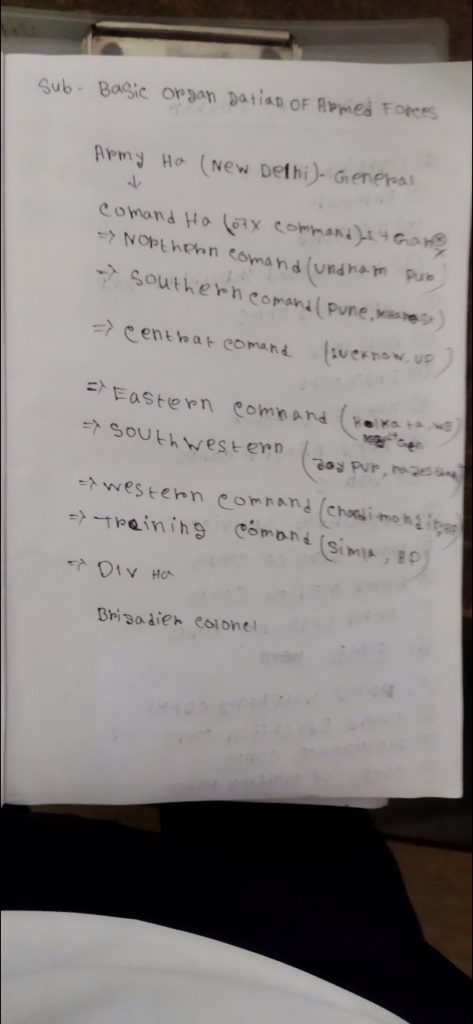 Sub - Basic Organ Sation OF Armed Forces
Army Hq (New Delhi)- General
↓
Comand Hq (07x Command)
=> Northern comand (Undham Pur)
=> Southern comand (Pune,
=> Central comand (Lucknow, UP)
=> Eastern command (Kolkata, WB
=> Southwestern (Jay pur,
=> Western comnand (Chandi mandir,
=> Training comand (Simla, HP)
=> Div Hq
Brigadier colonel